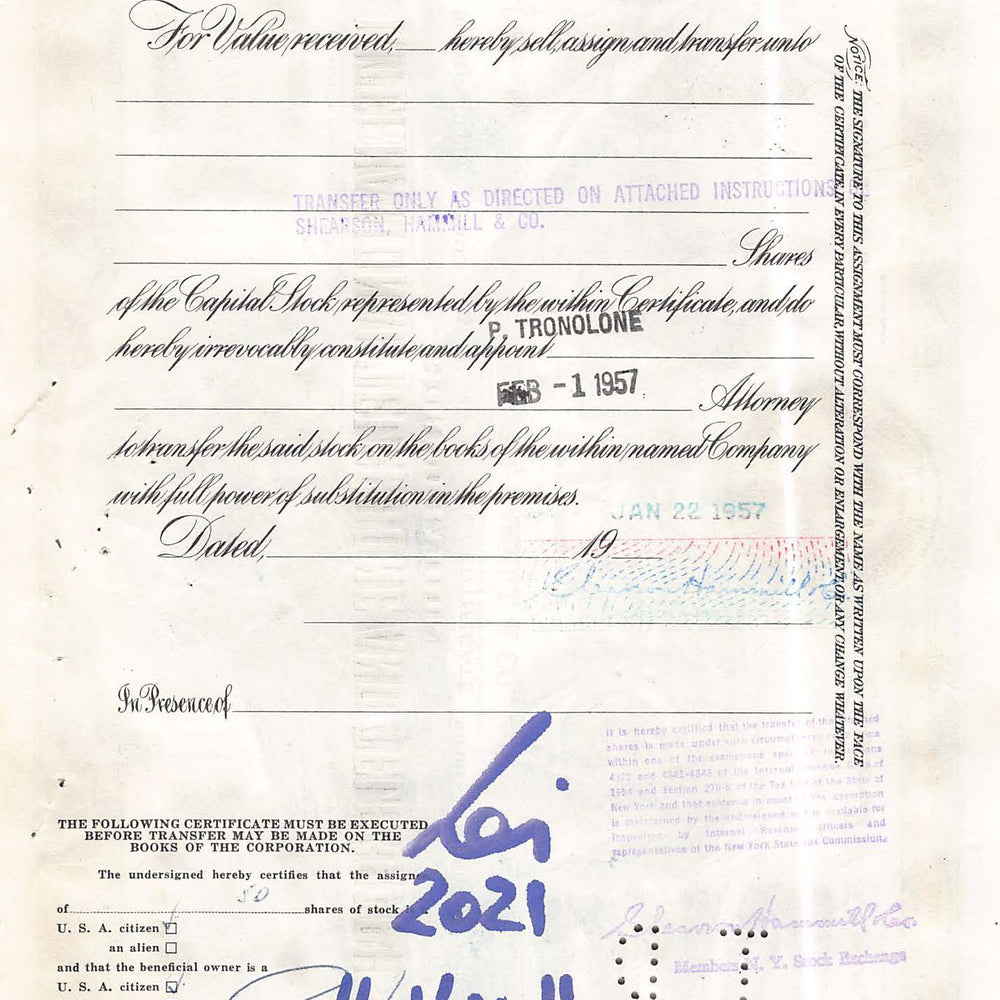 For Value received, hereby sell, assign and transfer unto
TRANSFER ONLY AS DIRECTED ON ATTACHED INSTRUCTIONS
SHEARSON, HAMMILL & CO.
Shares
of the Capital Stock represented by the within Certificate, and do
P. TRONOLONE
hereby irrevocably constitute and appoint
FEB - 1 1957
Attorney
to transfer the said stock on the books of the within named Company
with full power of substitution in the premises.
JAN 22 1957
Dated, 19
Shearson Hammill & Co.
In Presence of
NOTICE: THE SIGNATURE TO THIS ASSIGNMENT MUST CORRESPOND WITH THE NAME AS WRITTEN UPON THE FACE
OF THE CERTIFICATE, IN EVERY PARTICULAR, WITHOUT ALTERATION OR ENLARGEMENT, OR ANY CHANGE WHATEVER.
It is hereby certified that the transfer of the
shares is made under such circumstances
within one of the exemptions
4322 and 4341-4343 of the Internal Revenue Code of
1954 and section 270-5 of the Tax Law of the State of
New York and that evidence in proof of the exemption
is maintained by the undersigned and is available for
inspection by Internal Revenue officers and
representatives of the New York State Tax Commission
2021
THE FOLLOWING CERTIFICATE MUST BE EXECUTED
BEFORE TRANSFER MAY BE MADE ON THE
BOOKS OF THE CORPORATION.
The undersigned hereby certifies that the assigne
of 50 shares of stock
U. S. A. citizen
an alien
and that the beneficial owner is a
U. S. A. citizen
Shearson Hammill & Co.
Members N. Y. Stock Exchange